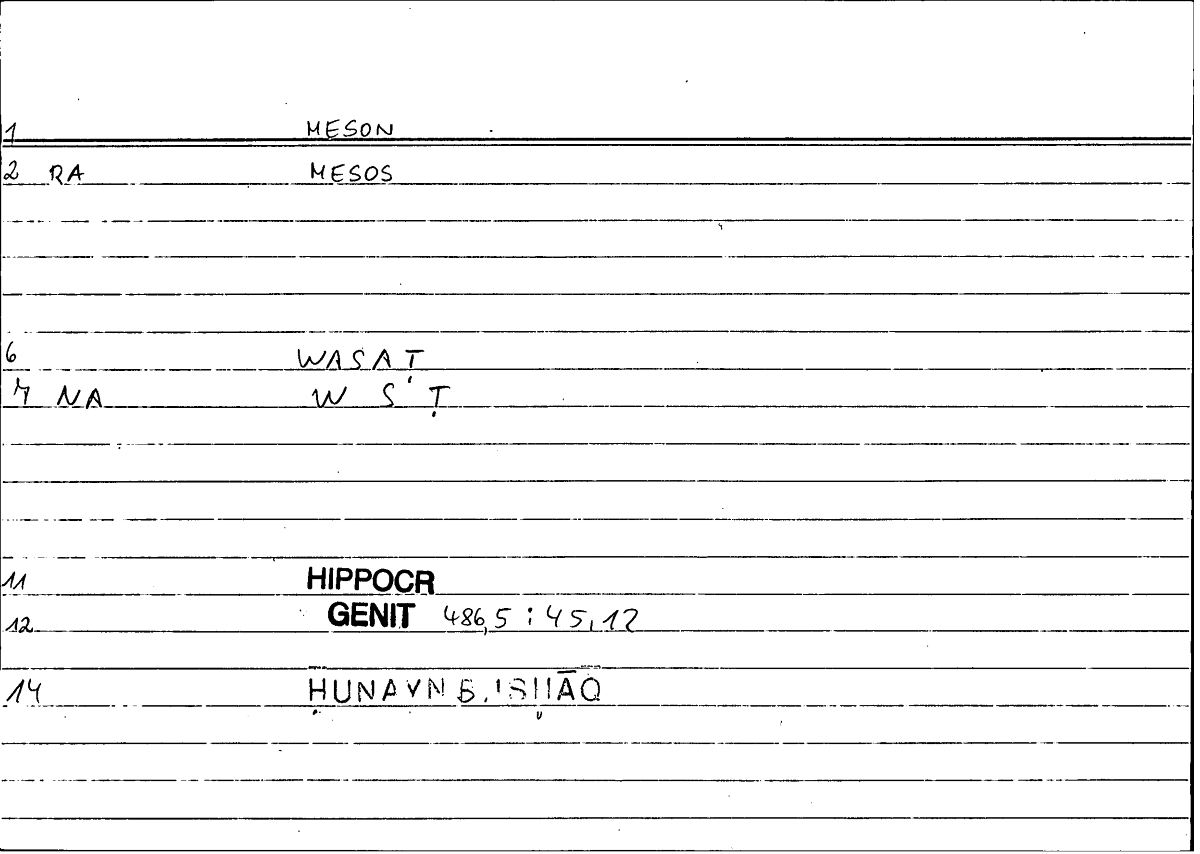 1 MESON
2 RA MESOS
6 WASAṬ
7 NA W S Ṭ
11 HIPPOCR
12 GENIT 486,5 : 45,12
14 ḤUNAYN B. ISḤĀQ